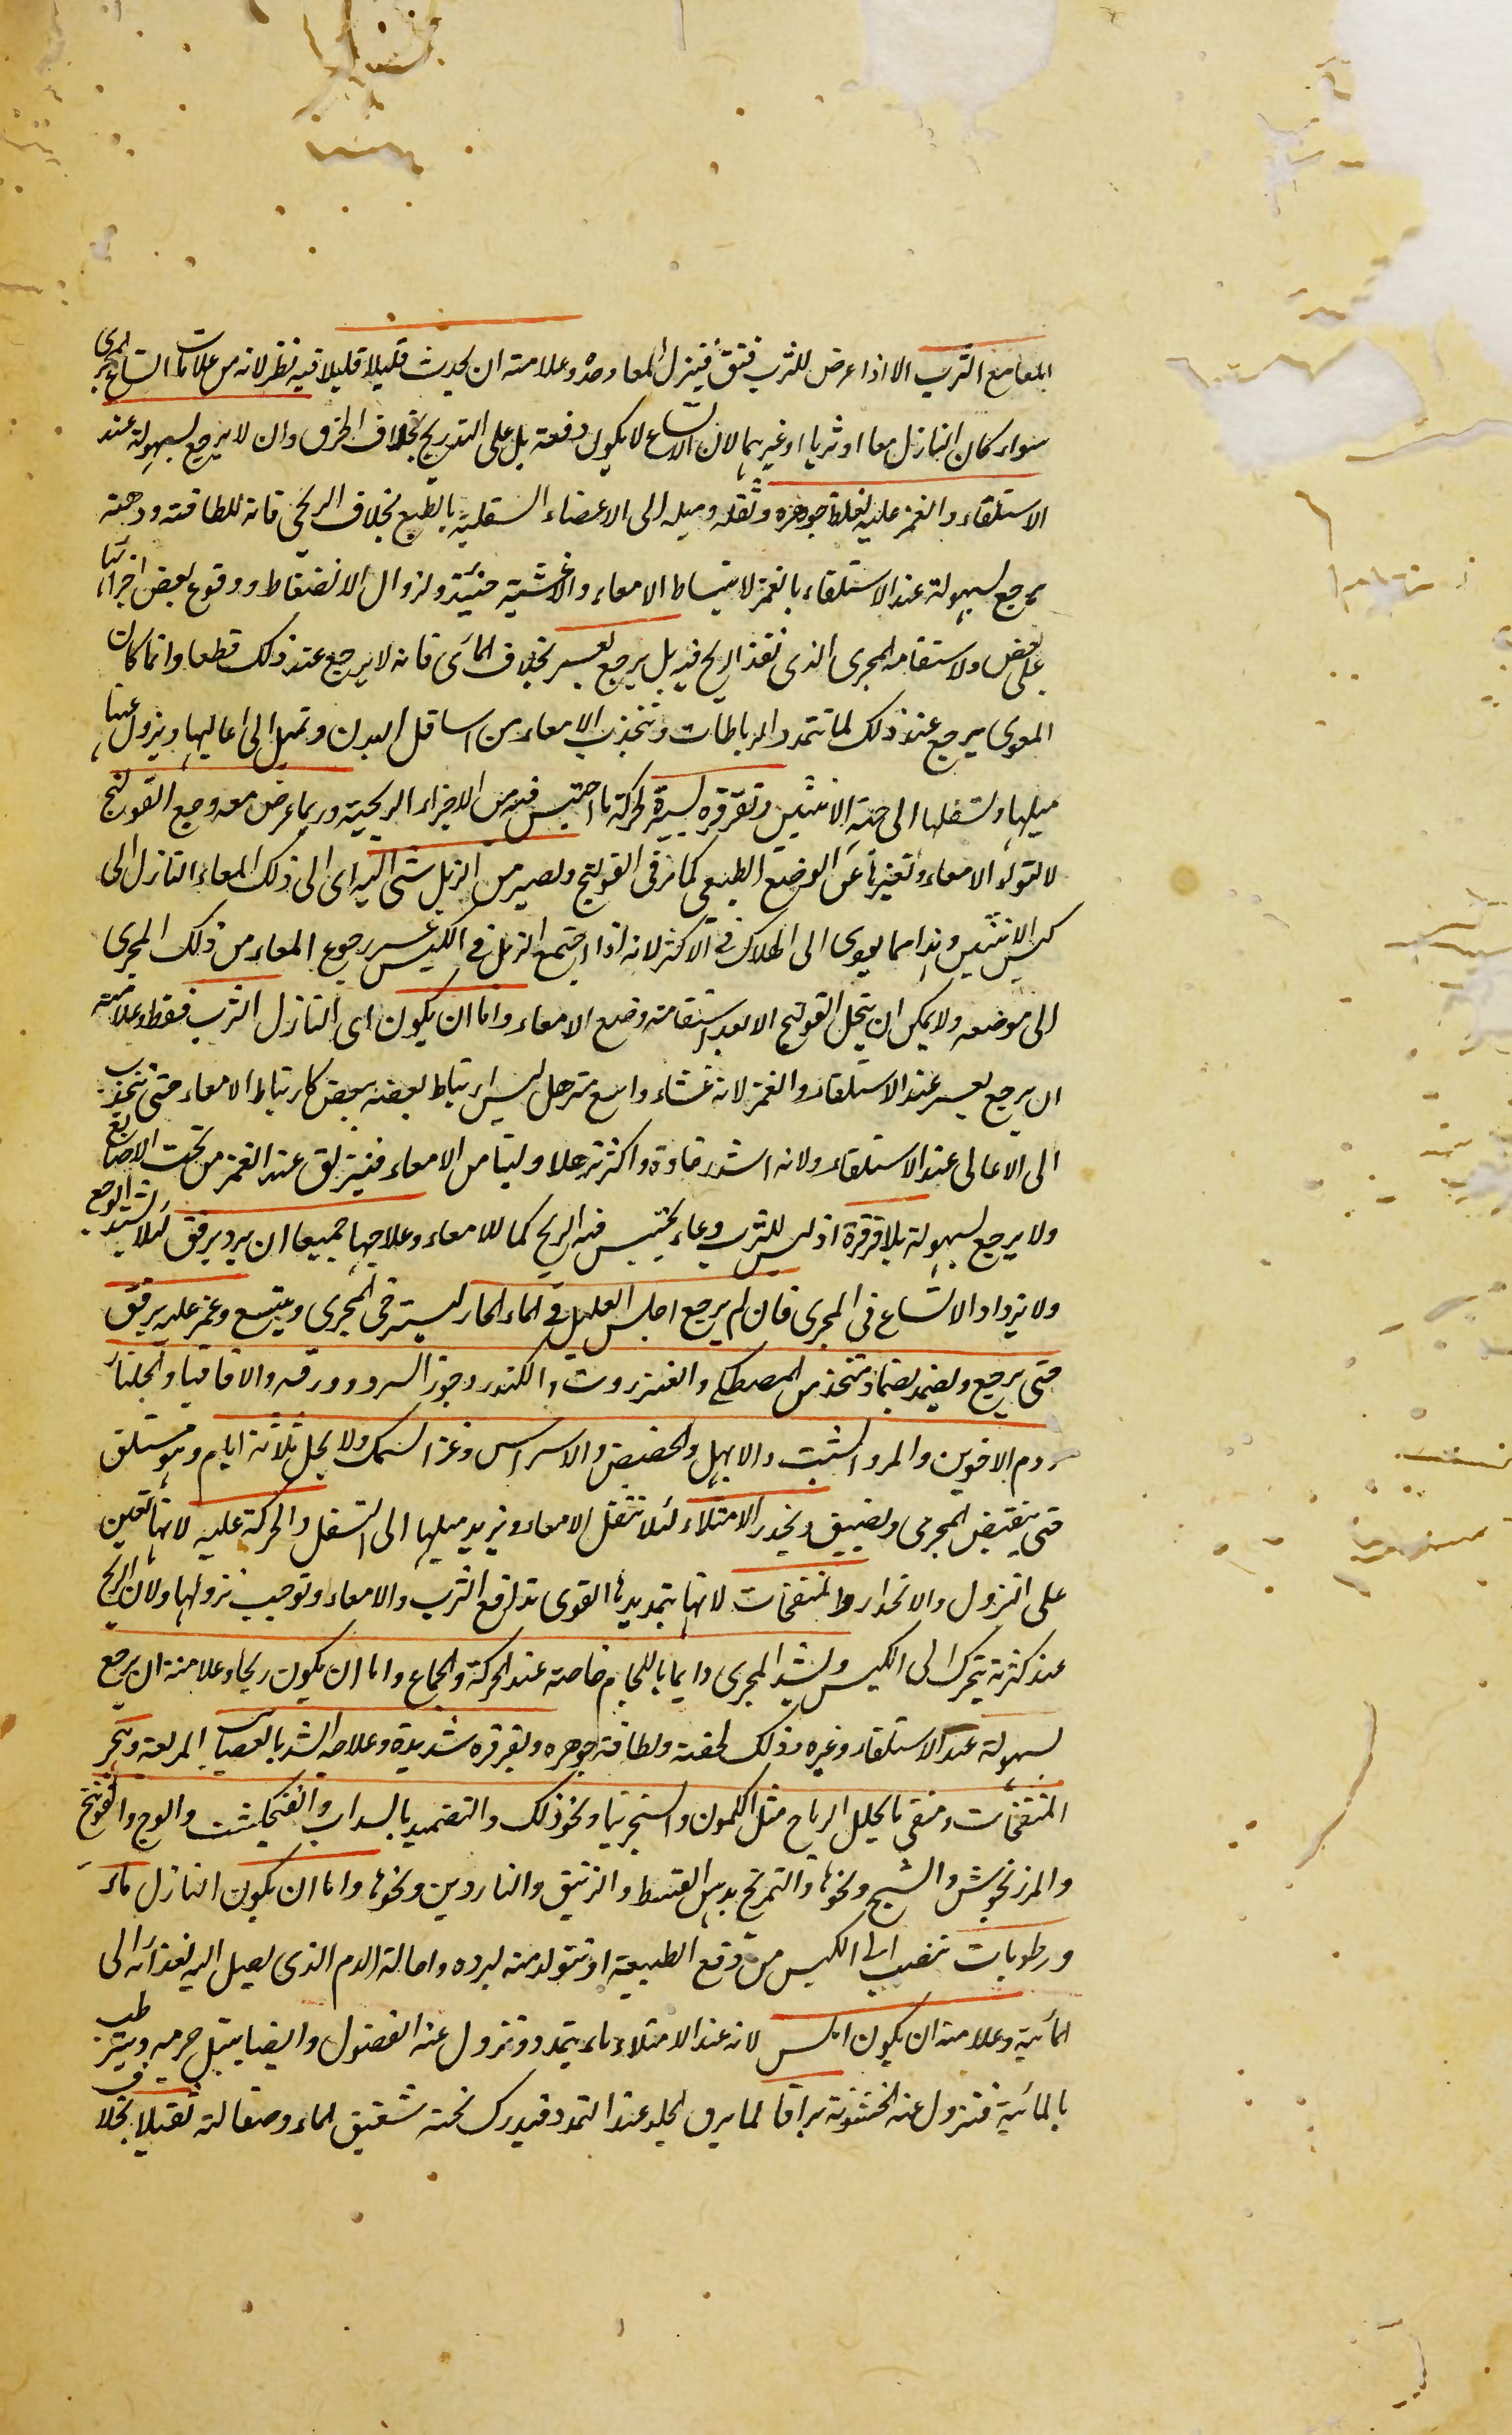 المعا مع الثرب الا اذا عرض للثرب فتق فينزل المعا وحده وعلامته ان يحدث قليلا قليلا فيه نظر لانه من علامات اتساع المجرى
سواء كان النازل معا او ثربا او غيرهما لان الاتساع لا يكون دفعة بل على التدريج بخلاف الخرق وان لا يرجع بسهولة عند
الاستلقاء والغمز عليه لغلظ جوهره وثقله وميله الى الاعضاء السفلية بالطبع بخلاف الريحى فانه للطافته وخفته
يرجع بسهولة عند الاستلقاء بالغمز لانبساط الامعاء والاغشية حينئذ ولزوال الانضغاط ووقوع بعض اجزائها
على بعض ولاستقامة المجرى الذى نفذ الريح فيه بل يرجع بعسر بخلاف المائى فانه لا يرجع عند ذلك قطعا وانما كان
المعوى يرجع عند ذلك لما تتمدد الرباطات وتنجذب الامعاء من اسافل البدن وتميل الى اعاليها ويزول عنها
ميلها وتسفلها الى جهة الانثيين وتقرقره يسيرة لحركة ما احتبس فيه من الاجزاء الريحية وربما عرض معه وجع القولنج
لالتواء الامعاء وتغيرها عن الوضع الطبيعى كما مر فى القولنج ويصير من الزبل شئ اليه اى الى ذلك المعاء النازل الى
كيس الانثيين وهذا مما يودى الى الهلاك فى الاكثر لانه اذا اجتمع الزبل فى الكيس عسر رجوع المعاء من ذلك المجرى
الى موضعه ولا يمكن ان ينحل القولنج الا بعد استقامة وضع الامعاء واما ان يكون اى النازل الثرب فقط وعلامته
ان يرجع بعسر عند الاستلقاء والغمز لانه غشاء واسع مترهل ليس ارتباط بعضه ببعض كارتباط الامعاء حتى تنجذب
الى الاعالى عند الاستلقاء ولانه اشد رخاوة واكثر ترهلا ولينا من الامعاء فينزلق عند الغمز من تحت الاصابع
ولا يرجع بسهولة بلا قرقرة اذ ليس للثرب وعاء يحتبس فيه الريح كما للامعاء وعلاجها جميعا ان يرد برفق لئلا يشتد الوجع
ولا يزداد الاتساع فى المجرى فان لم يرجع اجلس العليل فى الماء الحار ليسترخى المجرى ويتسع وغمز عليه برفق
حتى يرجع ويضمد بضماد متخذ من المصطكى والعنزروت والكندر وجوز السرو وورقه والاقاقيا والجلنار
ودم الاخوين والمر والشب والابهل والحضض والاسراس وغراء السمك ولا يحل ثلاثة ايام وهو مستلق
حتى ينقبض المجرى ويضيق ويحذر الامتلاء لئلا تثقل الامعاء ويزيد ميلها الى التسفل والحركة عليه لانها تعين
على النزول والانحدار والمنفخات لانها بتمديدها القوى تدفع الثرب والامعاء وتوجب نزولها ولان الريح
عند كثرته يتحرك الى الكيس ويشد المجرى دايما باللجام خاصة عند الحركة والجماع واما ان يكون ريحا وعلامته ان يرجع
بسهولة عند الاستلقاء وغيره وذلك لخفته ولطافة جوهره وبقرقره شديدة وعلاجه الشد بالعصائب المربعة وهجر
المنفخات وسقى ما يحلل الرياح مثل الكمون والسنجرينيا ونحو ذلك والتضميد بالسداب والفنجنكشت والوج والفوتنج
والمرزنجوش والشيح ونحوها والتمريخ بدهن القسط والزنبق والناردين ونحوها واما ان يكون النازل ماء
ورطوبات تنصب الى الكيس من دفع الطبيعة او تتولد منه لبرده واحالة الدم الذى يصل اليه لغذائه الى
المائية وعلامته ان يكون املس لانه عند الامتلاء ماء يتمدد وتزول عنه الغضون وايضا يبتل جرمه ويترطب
بالمائية فتزول عنه الخشونة براقا لما يرق الجلد عند التمدد فيدرك تحته شفيف الماء وصقالته ثقيلا بخلاف